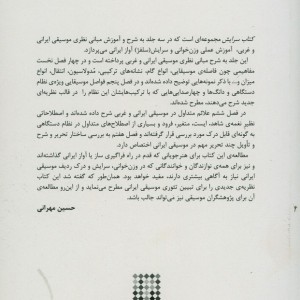 کتاب سرایش مجموعه‌ای است که در سه جلد به شرح و آموزش مبانی نظری موسیقی ایرانی
و غربی، آموزش عملی وزن‌خوانی و سرایش (سلفژ) آواز ایرانی می‌پردازد.
این جلد به شرح مبانی نظری موسیقی ایرانی و غربی پرداخته است و در چهار فصل نخست
مفاهیمی چون فاصله‌ی موسیقایی، انواع گام، نشانه‌های ترکیبی، مُدولاسیون، انتقال، انواع
میزان و... با ذکر نمونه‌هایی توضیح داده شده‌اند و در فصل پنجم فواصل موسیقایی ویژه‌ی نظام
دستگاهی و دانگ‌ها و چهارصدایی‌هایی که با ترکیب‌هایشان این نظام را در قالب نظریه‌ای
جدید شرح می‌دهند، مطرح شده‌اند.
در فصل ششم علائم متداول در موسیقی ایرانی و غربی شرح داده شده‌اند و اصطلاحاتی
نظیر نغمه‌ی شاهد، ایست، متغیر، فرود و بسیاری از اصطلاح‌های متداول در نظام دستگاهی
به گونه‌ای قابل درک مورد بررسی قرار گرفته‌اند و فصل هفتم به بررسی ساختار تحریر و شرح
و تأویل چند تحریر مهم در موسیقی ایرانی اختصاص دارد.
مطالعه‌ی این کتاب برای هنرجویانی که قدم در راه فراگیری ساز یا آواز ایرانی گذاشته‌اند
و نیز برای همه‌ی نوازندگان و خوانندگانی که در وزن‌خوانی، سرایش و درک ردیف موسیقی
ایرانی نیاز به آگاهی بیشتری دارند، مفید خواهد بود. همان‌طور که گفته شد این کتاب
نظریه‌ی جدیدی را برای تبیین تئوری موسیقی ایرانی مطرح می‌نماید و از این‌رو مطالعه‌ی
آن برای پژوهشگران موسیقی نیز می‌تواند جالب باشد.
حسین مهرانی